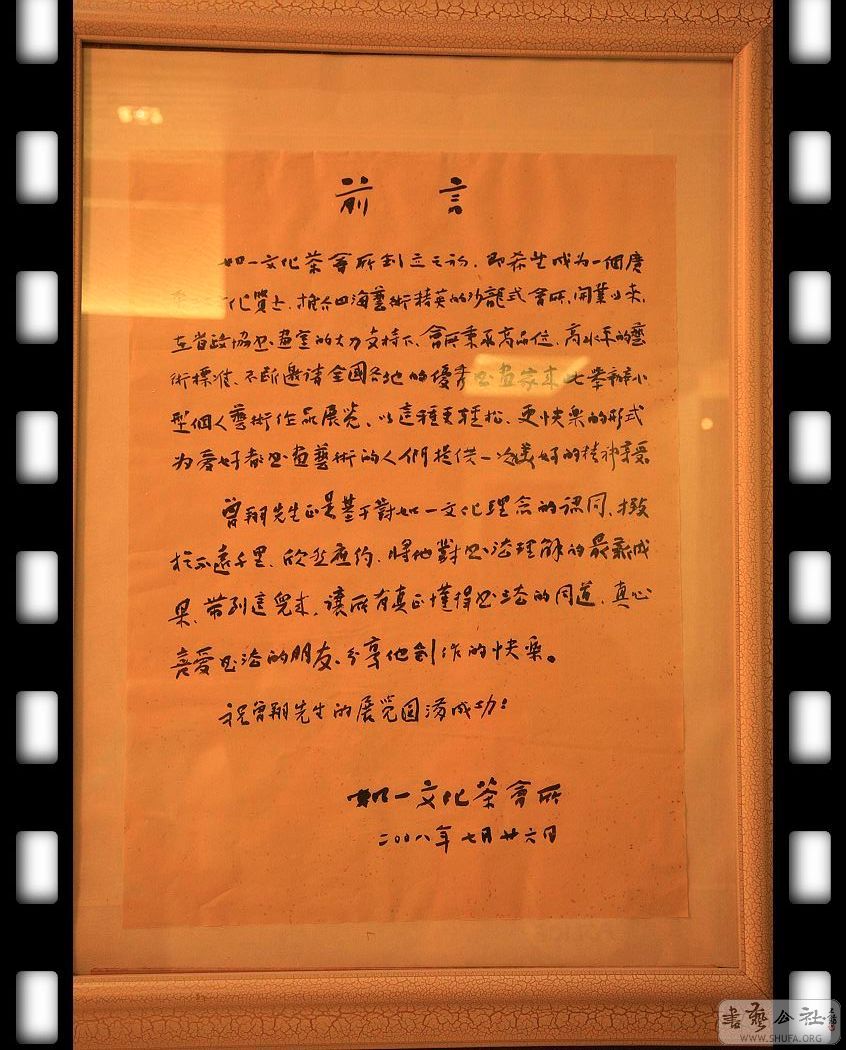 前言
如一文化茶會所創立之初,即希望成为一個廣
化質量,推介四海藝術精英的沙龍式會所,開業以來,
在省政協书畫室的大力支持下、會所秉承高品位、高水平的藝
術標准、不断邀请全國各地的優秀书画家來此舉辦小
型個人藝術作品展览、以這種更轻松、更快樂的形式
为爱好者书画藝術的人們提供一次美好的精神享受
曾翔先生正是基于對如一文化理念的認同、拨
拄不遠千里、欣然應約、將他對书法理解的最新成
果、带到這兒來、讓所有真正懂得书法的同道、真心
喜爱书法的朋友、分享他創作的快樂。
祝曾翔先生的展览圆满成功!
如一文化茶會所
二〇〇八年七月廿六日
書藝公社
WWW.SHUFA.ORG